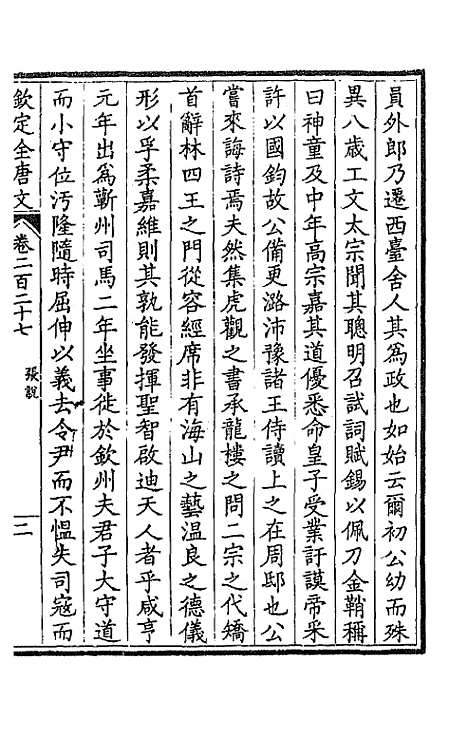 員外郎乃遷西臺舍人其為政也如始云爾初公幼而殊
異八歲工文太宗聞其聰明召試詞賦錫以佩刀金鞘稱
曰神童及中年高宗嘉其道優悉命皇子受業訏謨帝采
許以國鈞故公備更潞沛豫諸王侍讀上之在周邸也公
嘗來誨詩焉夫然集虎觀之書承龍樓之問二宗之代矯
首辭林四王之門從容經席非有海山之藝溫良之德儀
形以孚柔嘉維則其孰能發揮聖智啟迪天人者乎咸亨
元年出為蘄州司馬二年坐事徙於欽州夫君子大守道
而小守位汚隆隨時屈伸以義去令尹而不愠失司寇而
欽定全唐文 卷二百二十七 張說 二